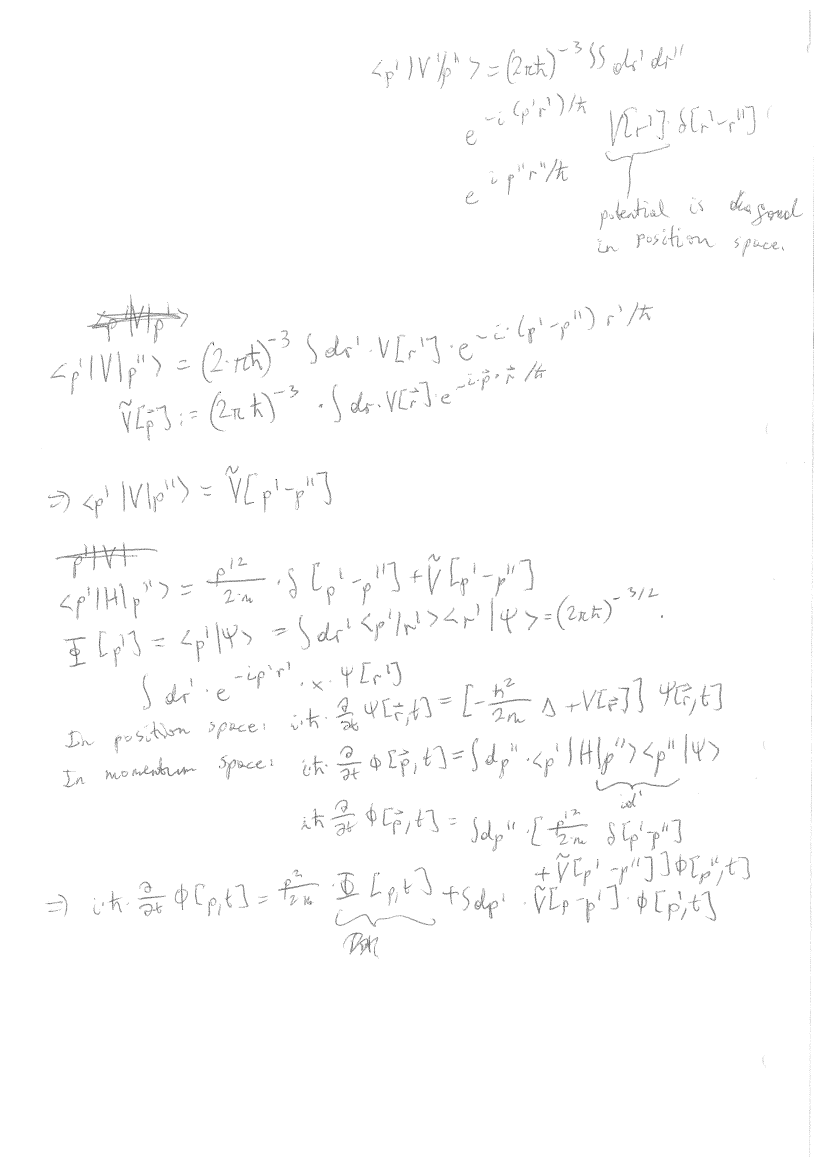 <p'|V|p''> = (2πħ)^{-3} ∫∫ dr' dr''
e^{-i(p'r')/ħ} V[r'] · δ[r'-r'']
e^{i p''r''/ħ}
potential is diagonal
in position space.
<p'|V|p'>
<p'|V|p''> = (2·πħ)^{-3} ∫ dr' · V[r'] · e^{-i·(p'-p'') r'/ħ}
Ṽ[p⃗] := (2πħ)^{-3} · ∫ dr · V[r⃗] · e^{-i·p⃗·r⃗/ħ}
⇒ <p'|V|p''> = Ṽ[p'-p'']
p'|V|
<p'|H|p''> = p'²/2·m · δ[p'-p''] + Ṽ[p'-p'']
Φ[p'] = <p'|Ψ> = ∫ dr' <p'|r'><r'|Ψ> = (2πħ)^{-3/2} .
∫ dr' · e^{-ip'r'} · x · Ψ[r']
In position space: i·ħ · ∂/∂t Ψ[r⃗,t] = [-ħ²/2m Δ + V[r⃗]] Ψ[r⃗,t]
In momentum space: iħ · ∂/∂t Φ[p⃗,t] = ∫ dp'' · <p'|H|p''><p''|Ψ>
id'
iħ ∂/∂t Φ[p⃗,t] = ∫ dp'' · [p'²/2·m δ[p'-p'']
+ Ṽ[p'-p'']] Φ[p'',t]
⇒ i·ħ · ∂/∂t Φ[p,t] = p²/2m · Φ[p,t] + ∫ dp' · Ṽ[p-p'] · Φ[p',t]